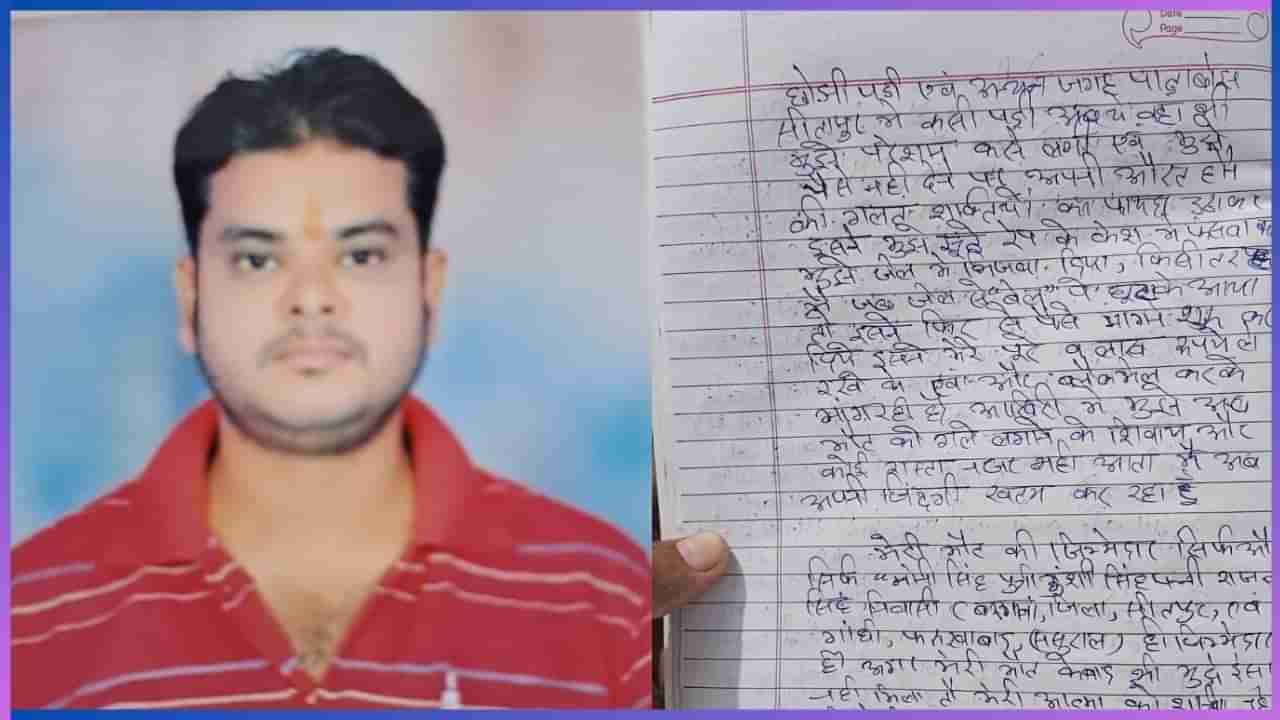 Date
Page
छोडनी पड़ी एवं अन्यत्र जगह
सीतापुर में करनी पड़ी अब ये वहा भी
मुझे परेशान करने लगी एवं मुझे
पैसे नही देने पर अपनी औरत होने
की गलत शक्तियों का फायदा उठाकर
इसने मुझे झूठे रेप के केश में फसवा कर
मुझे जेल में भिजवा दिया, किसी तरह
मै जब जेल से "बेल" पे छूटके आया
तो इसने फिर से पैसे मागने शुरू कर
दिये इसने मेरे पूरे 9 लाख रूपये ले
रखे थे एवं और ब्लैकमेल करके
मांग रही है आखिरी में मुझे अब
मौत को गले लगाने के शिवाय और
कोई रास्ता नजर नही आता मै अब
अपनी जिंदगी खतम कर रहा हूँ
मेरी मौत की जिम्मेदार सिर्फ औ
सिर्फ सिंह पुत्री मुंशी सिंह पत्नी
सिंह निवासी जिला, सीतापुर, एवं
गांधी, फरूखाबाद (ससुराल) ही जिम्मेदार
है अगर मेरी मौत के बाद भी मुझे इंसा
नही मिला तो मेरी आत्मा को शान्ति नही